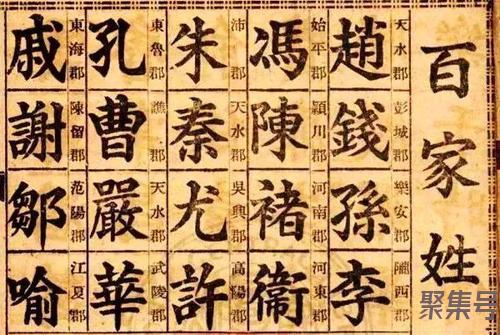 百家姓
天水郡 彭城郡 樂安郡 隴西郡
趙錢孫李
始平郡 潁川郡 河南郡 河東郡
馮陳褚衞
沛郡 天水郡 吳興郡 高陽郡
朱秦尤許
東魯郡 譙郡 天水郡 武陵郡
孔曹嚴華
東海郡 陳留郡 范陽郡 江夏郡
戚謝鄒喻
聚集号